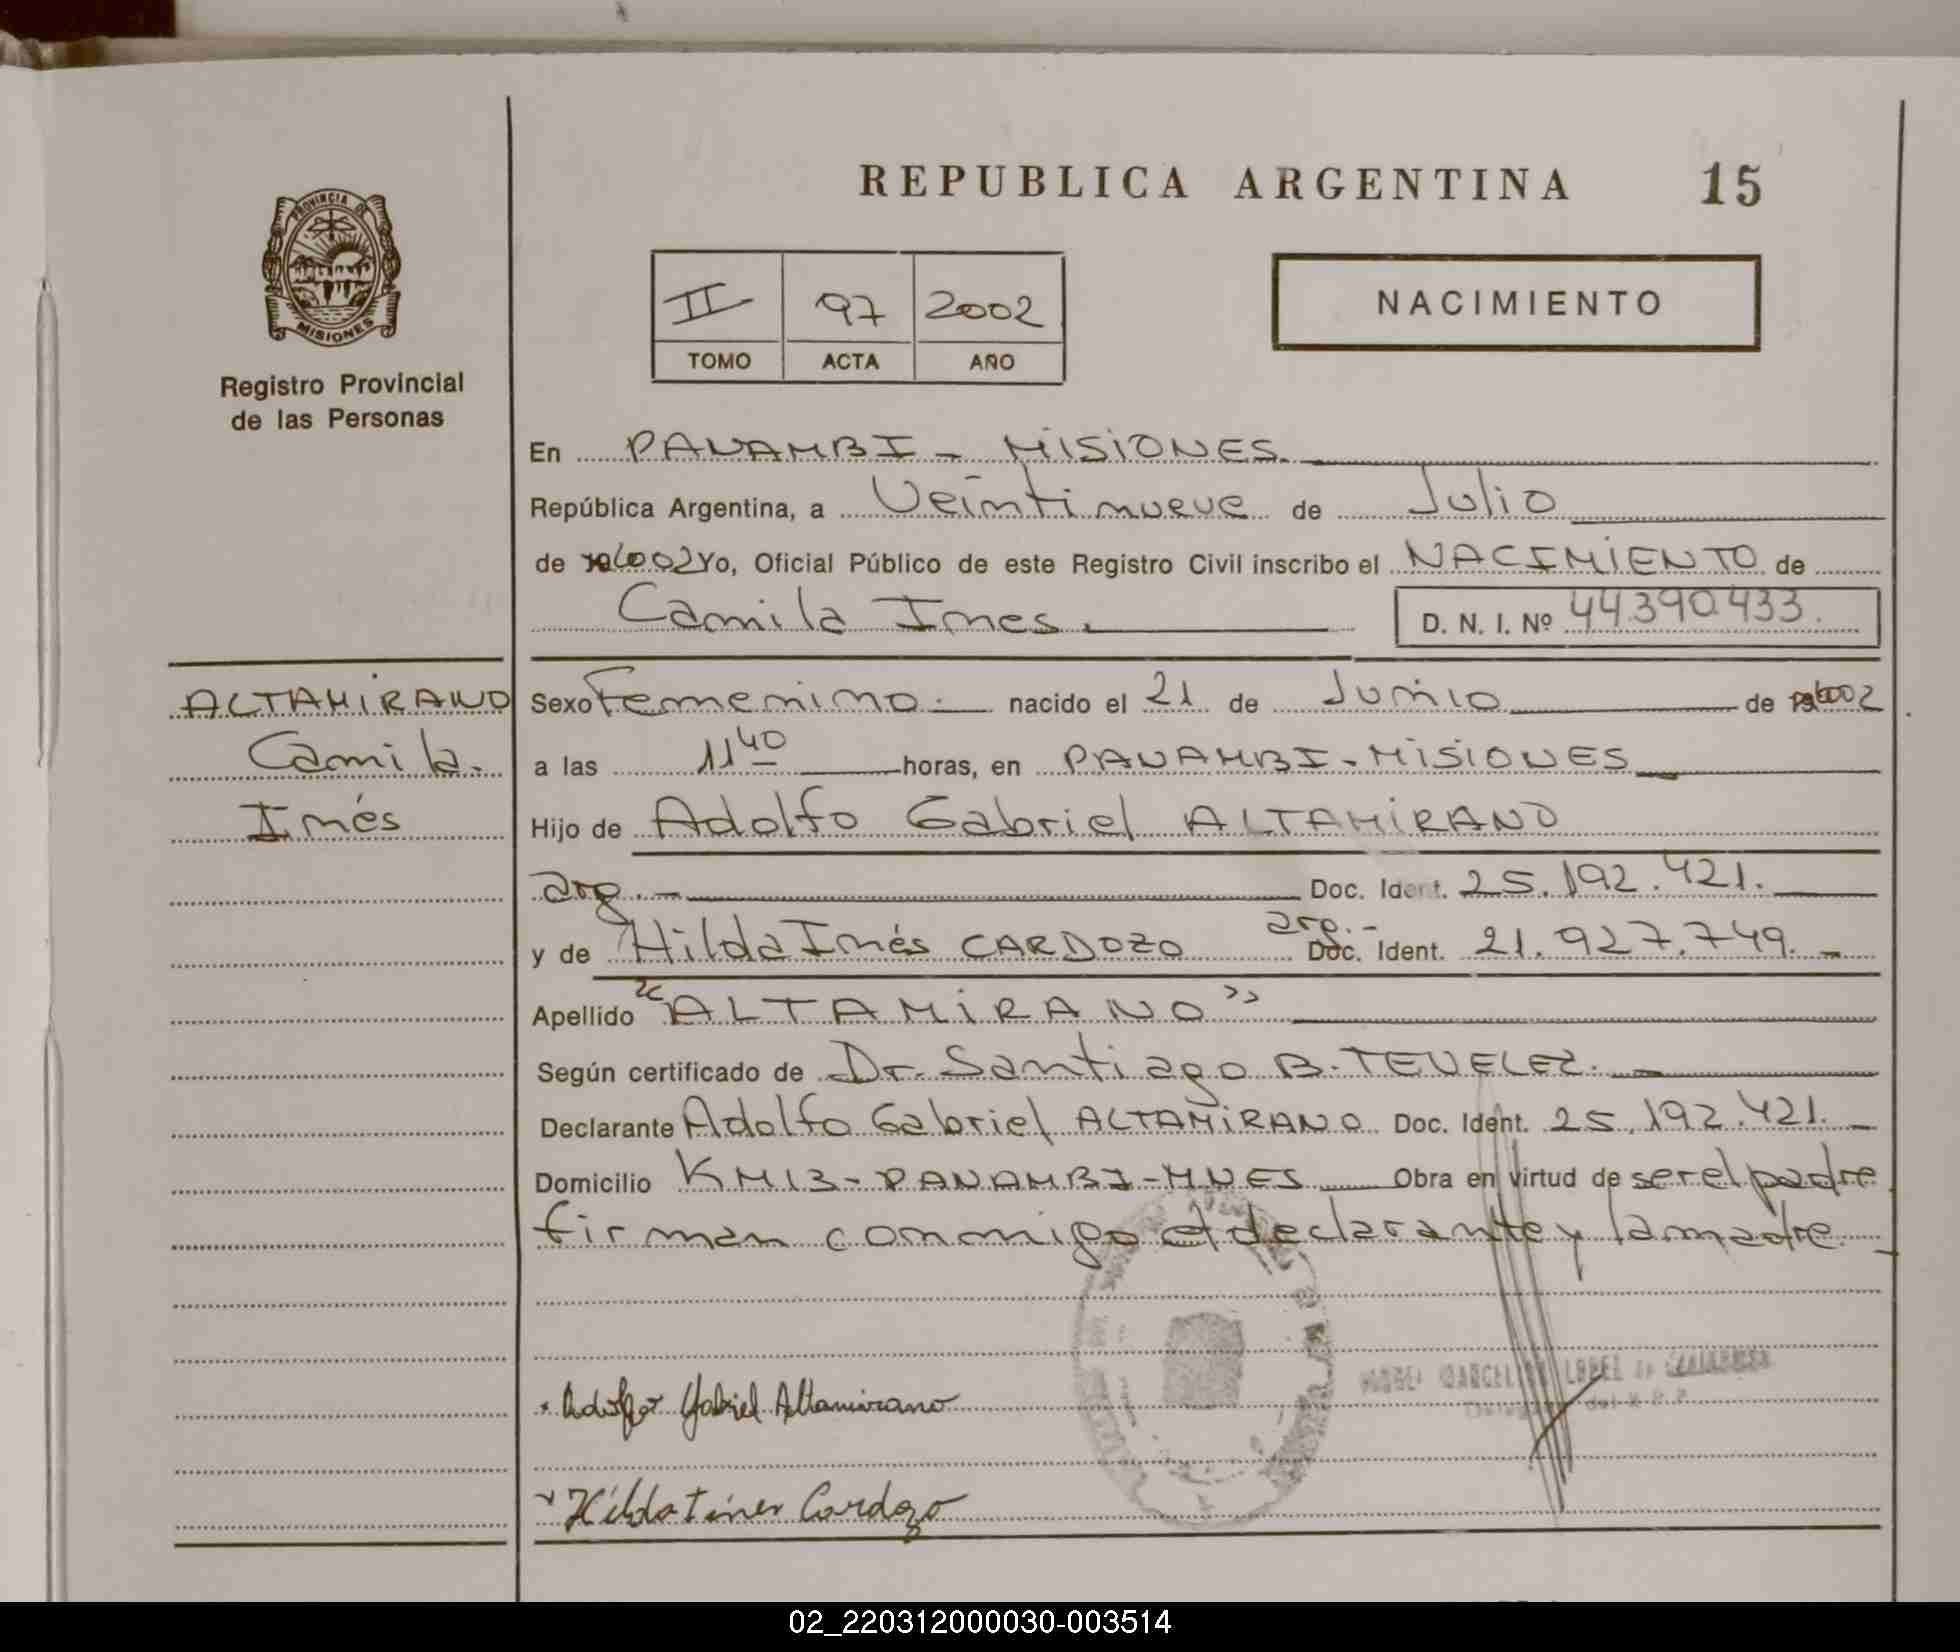 REPUBLICA ARGENTINA 15
PROVINCIA DE
MISIONES
Registro Provincial
de las Personas
II 97 2002
TOMO ACTA AÑO
NACIMIENTO
En PANAMBI - MISIONES.
República Argentina, a Veintinueve de Julio
de 2002 Yo, Oficial Público de este Registro Civil inscribo el NACIMIENTO de
Camila Ines. D. N. I. Nº 44.390.433.
ALTAMIRANO
Camila.
Inés
Sexo Femenino. nacido el 21 de Junio de 2002
a las 11 40 horas, en PANAMBI - MISIONES
Hijo de Adolfo Gabriel ALTAMIRANO
arg. - Doc. Ident. 25.192.421.
y de Hilda Inés CARDOZO arg. - Doc. Ident. 21.927.749. -
Apellido "ALTAMIRANO"
Según certificado de Dr. Santiago B. TEVELEZ.
Declarante Adolfo Gabriel ALTAMIRANO Doc. Ident. 25.192.421. -
Domicilio KM13 - PANAMBI - MNES Obra en virtud de ser el padre
firman conmigo el declarante y la madre
Adolfo Gabriel Altamirano
Hilda Cardozo
02_220312000030-003514